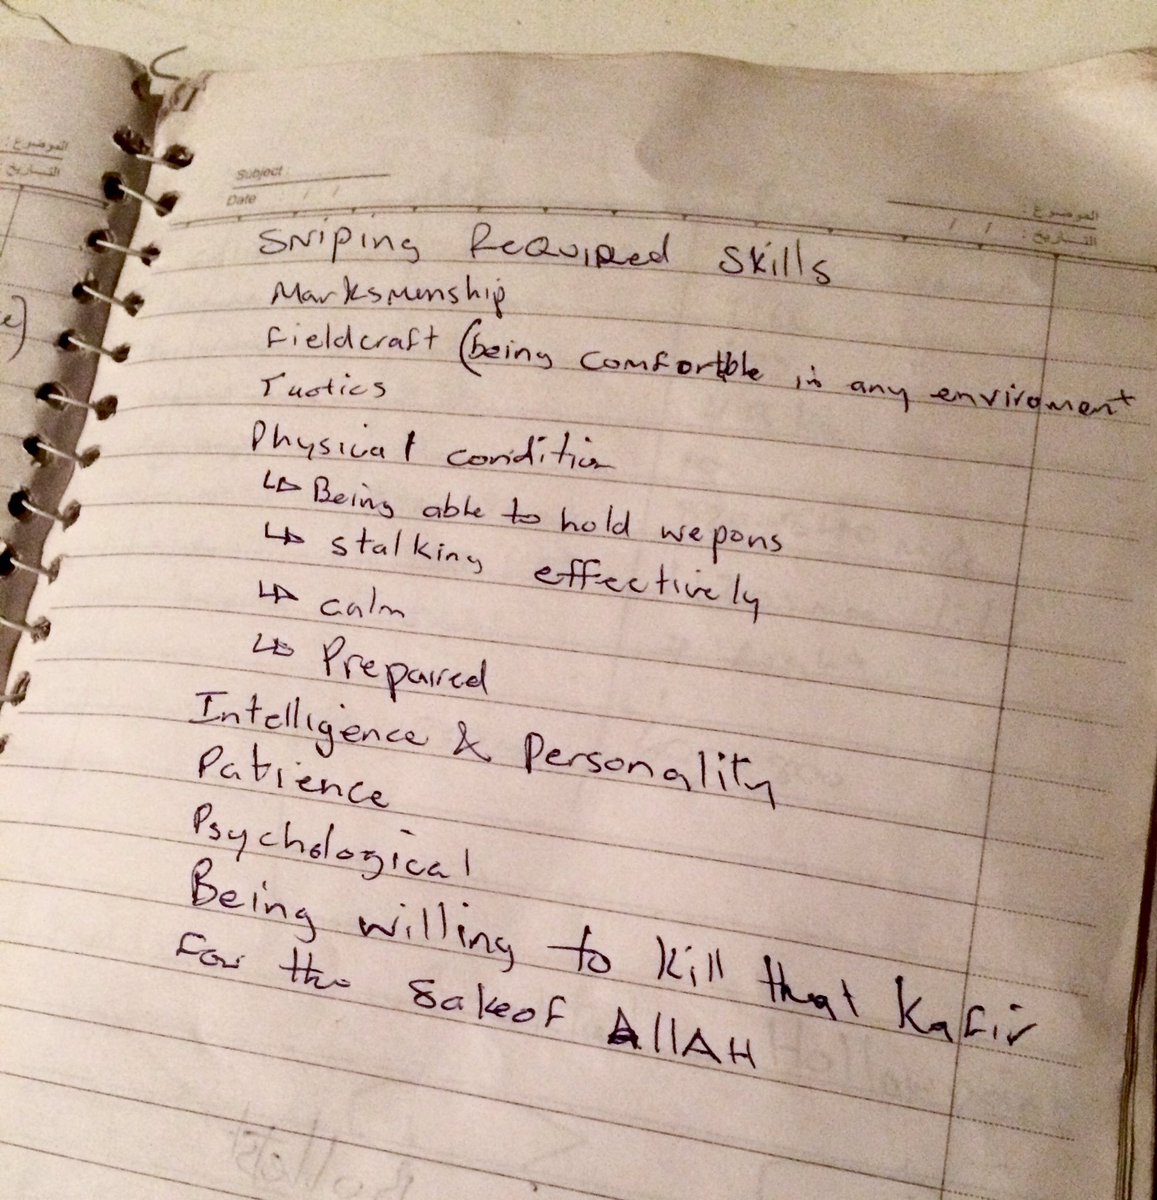 Subject
Date / /
الموضوع :
التـاريخ : / /
الموضوع :
التـاريخ :
Sniping Required Skills
Marksmenship
Fieldcraft (being comfortble in any enviroment
Tactics
Physical condition
↳ Being able to hold wepons
↳ stalking effectively
↳ calm
↳ Prepaired
Intelligence & Personality
Patience
Psychological
Being willing to kill that Kafir
For the sake of AllAH